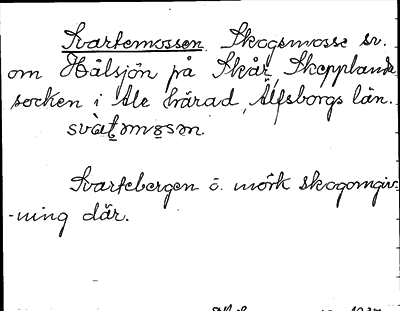 Svartemossen. Skogsmosse sv.
om Hålsjön på Skår, Skepplanda
socken i Ale härad, Älfsborgs län.
svàt̠əmo̠sən.
Svartebergen o. mörk skogomgiv-
-ning där.